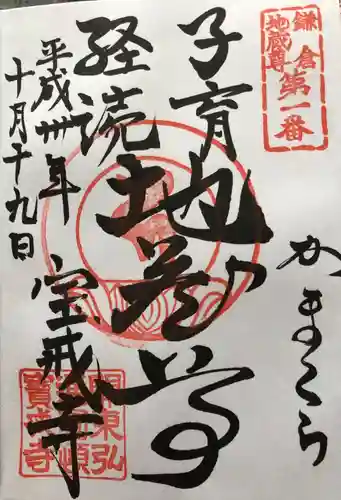 鎌倉
地蔵尊
第一番
かまくら
子育
地蔵尊
経読
平成卅年
十月十九日
宝戒寺
寶戒寺